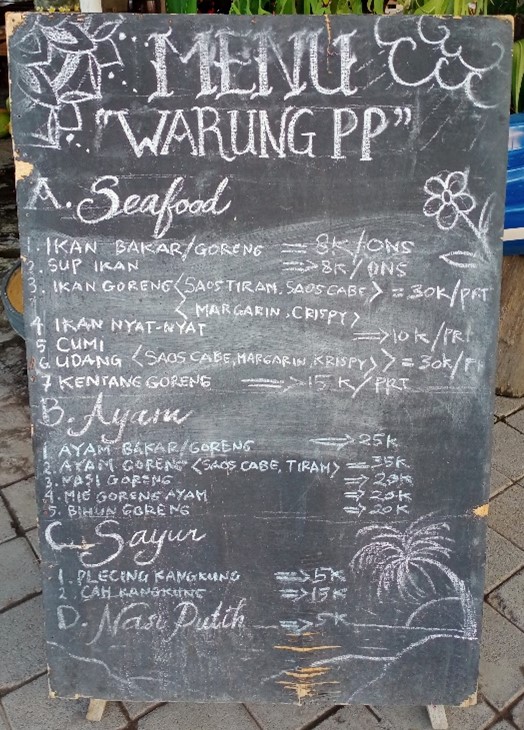 MENU
"WARUNG PP"
A. Seafood
1. IKAN BAKAR/GORENG => 8K/ONS
2. SUP IKAN => 8K/ONS
3. IKAN GORENG <SAOS TIRAM, SAOS CABE> = 30K/PRT
MARGARIN, CRISPY>
4 IKAN NYAT-NYAT => 10K/PRT
5 CUMI
6 UDANG <SAOS CABE, MARGARIN, KRISPY> = 30K/
7 KENTANG GORENG => 15K/PRT
B. Ayam
1 AYAM BAKAR/GORENG => 25K
2. AYAM GORENG <SAOS CABE, TIRAM> = 35K
3. NASI GORENG => 20K
4. MIE GORENG AYAM => 20K
5. BIHUN GORENG => 20K
C. Sayur
1. PLECING KANGKUNG => 15K
2. CAH KANGKUNG => 15K
D. Nasi Putih => 5K